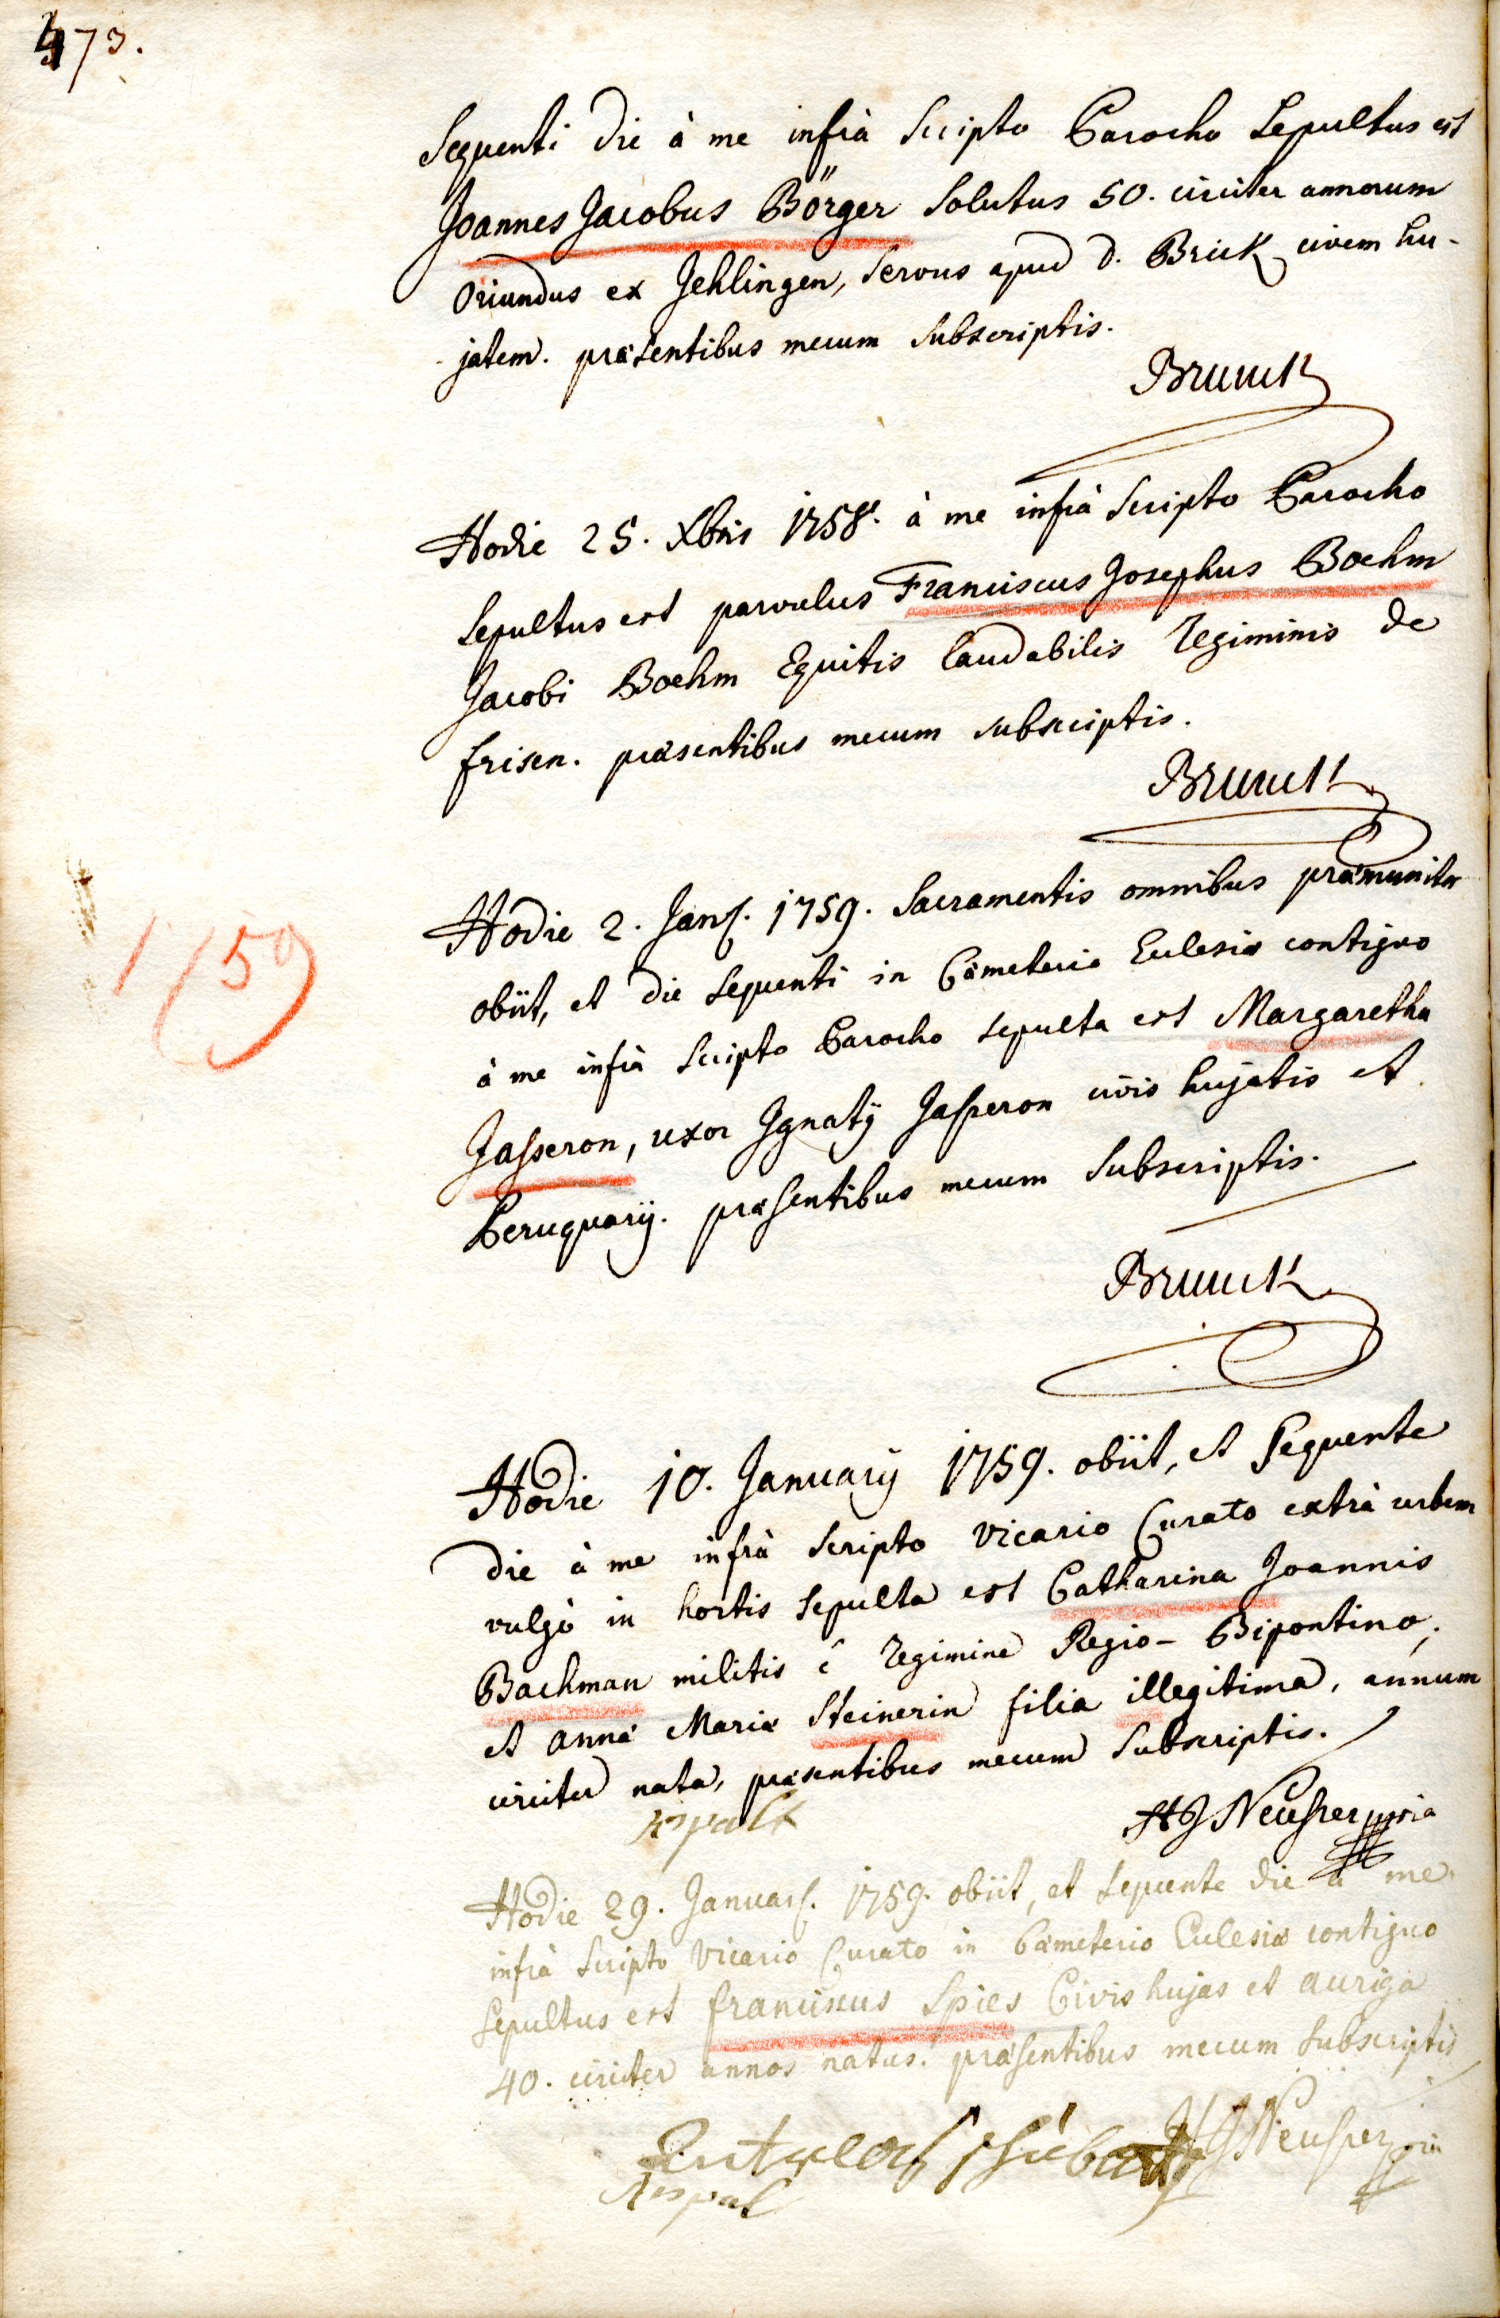 473.
Sequenti die à me infrà Scripto Parocho Sepultus est
Joannes Jacobus Börger Solutus 50. circiter annorum
Oriundus ex Jehlingen, Servus apud D. Brick civem hu-
jatem. præsentibus mecum Subscriptis.
Brunck
Hodie 25. Xbris 1758. à me infrà Scripto Parocho
Sepultus est parvulus Franciscus Josephus Boehm
Jacobi Boehm Equitis laudabilis Regiminis de
frisen. præsentibus mecum subscriptis.
Brunck
1759
Hodie 2. Jan. 1759. Sacramentis omnibus præmunita
obiit, et die Sequenti in Cæmeterio Ecclesiæ contiguo
à me infrà Scripto Parocho sepulta est Margaretha
Jasseron, uxor Ignatij Jasseron civis hujatis et
Peruquarij. præsentibus mecum Subscriptis.
Brunck
Hodie 10. Januarij 1759. obiit, et Sequente
die à me infrà Scripto Vicario Curato extrà urbem
vulgò in hortis Sepulta est Catharina Joannis
Bachman militis è regimine Regio-Bipontino,
et Annæ Mariæ Steinerin filia illegitima, annum
circiter nata, præsentibus mecum Subscriptis.
HJ Neusser
Hodie 29. Januar. 1759. obiit, et Sequente die à me
infrà Scripto Vicario Curato in Cæmeterio Ecclesiæ contiguo
Sepultus est franciscus Spies Civis hujas et auriga
40. circiter annos natus. præsentibus mecum Subscriptis
HJ Neusser